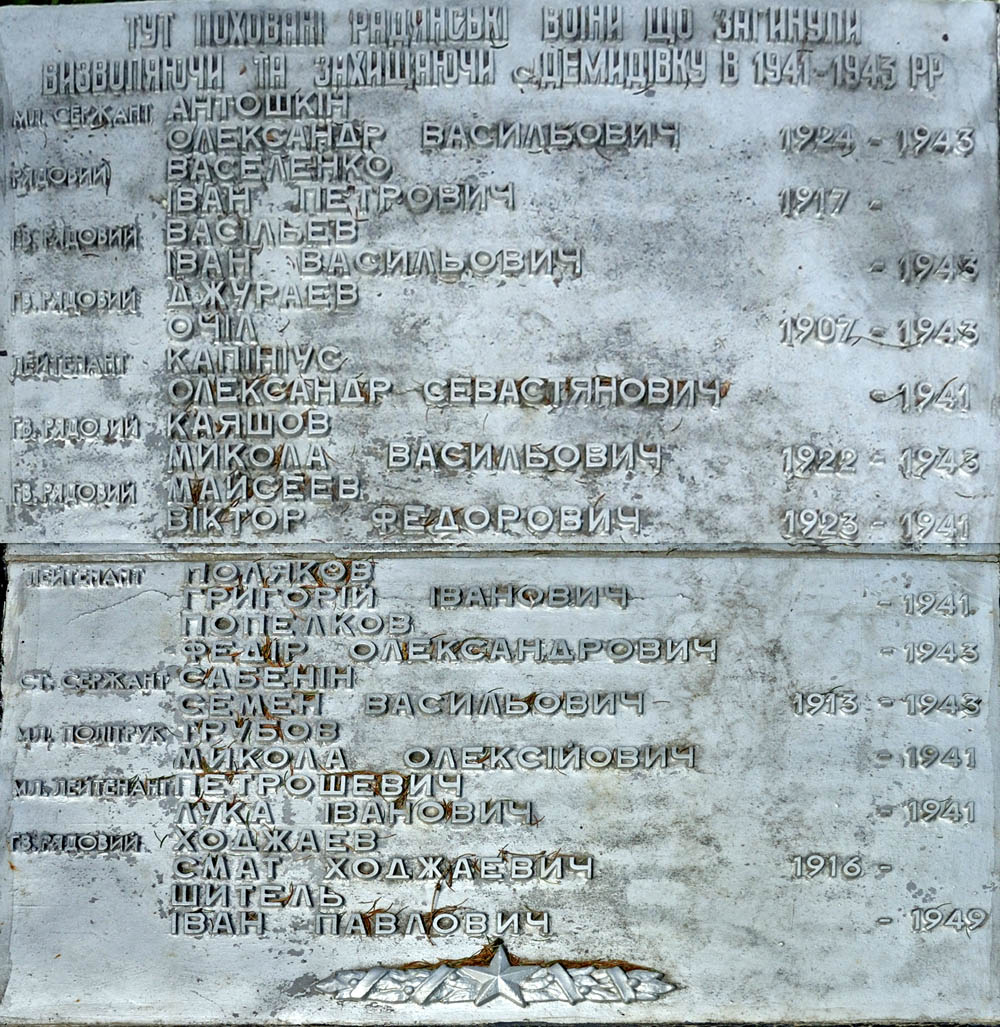 ТУТ ПОХОВАНІ РАДЯНСЬКІ ВОЇНИ ЩО ЗАГИНУЛИ
ВИЗВОЛЯЮЧИ ТА ЗАХИЩАЮЧИ с.ДЕМИДІВКУ В 1941-1943 РР
МЛ. СЕРЖАНТ АНТОШКІН
ОЛЕКСАНДР ВАСИЛЬОВИЧ 1924 - 1943
РЯДОВИЙ ВАСЕЛЕНКО
ІВАН ПЕТРОВИЧ 1917 -
ГВ. РЯДОВИЙ ВАСІЛЬЕВ
ІВАН ВАСИЛЬОВИЧ - 1943
ГВ. РЯДОВИЙ ДЖУРАЕВ
ОЧІЛ 1907 - 1943
ЛЕЙТЕНАНТ КАПІНІУС
ОЛЕКСАНДР СЕВАСТЯНОВИЧ - 1941
ГВ. РЯДОВИЙ КАЯШОВ
МИКОЛА ВАСИЛЬОВИЧ 1922 - 1943
ГВ. РЯДОВИЙ МАЙСЕЕВ
ВІКТОР ФЕДОРОВИЧ 1923 - 1941
ЛЕЙТЕНАНТ ПОЛЯКОВ
ГРИГОРІЙ ІВАНОВИЧ - 1941
ПОПЕЛКОВ
ФЕДІР ОЛЕКСАНДРОВИЧ - 1943
СТ. СЕРЖАНТ САБЕНІН
СЕМЕН ВАСИЛЬОВИЧ 1913 - 1943
МЛ. ПОЛІТРУК ГРУБОВ
МИКОЛА ОЛЕКСІЙОВИЧ - 1941
МЛ. ЛЕЙТЕНАНТ ПЕТРОШЕВИЧ
ЛУКА ІВАНОВИЧ - 1941
ГВ. РЯДОВИЙ ХОДЖАЕВ
СМАТ ХОДЖАЕВИЧ 1916 -
ШИТЕЛЬ
ІВАН ПАВЛОВИЧ - 1949